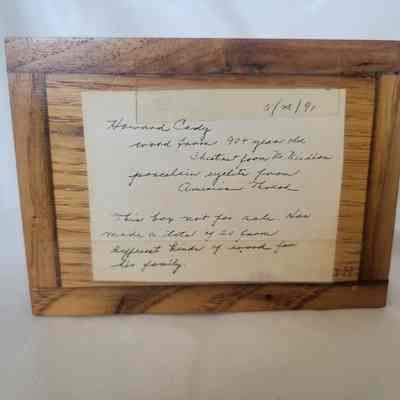 Howard Cady
wood from 90+ year old
Chestnut from No. Windham
porcelain eyelets from
American Thread
This box not for sale. Has
made a total of 20 from
different kinds of wood for
his family